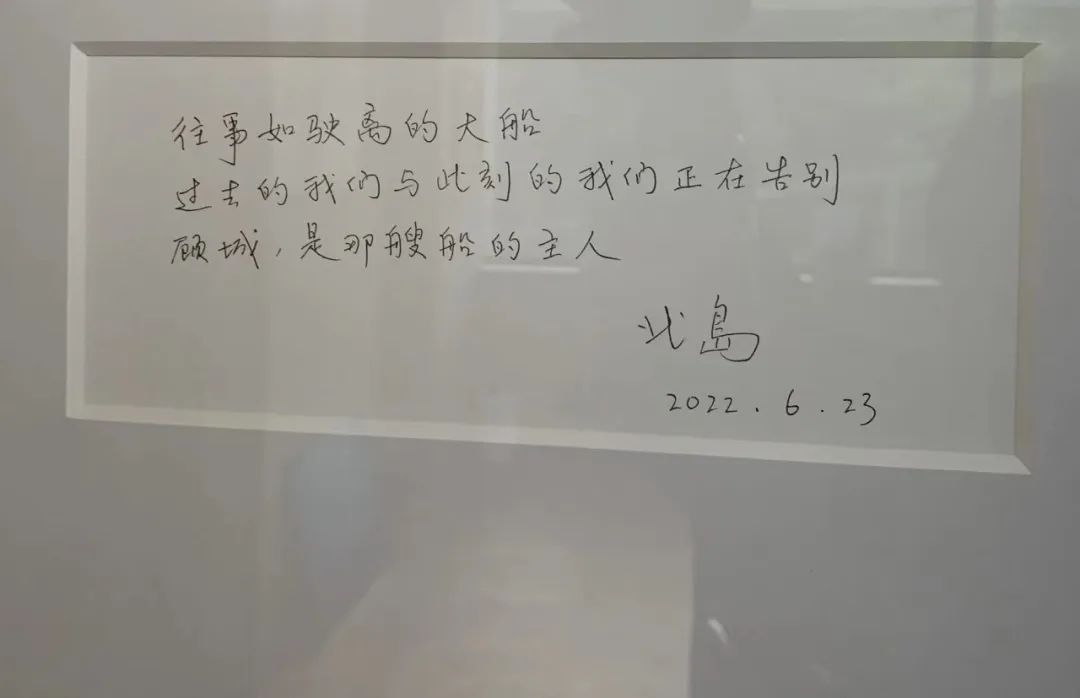 往事如驶离的大船
过去的我们与此刻的我们正在告别
顾城，是那艘船的主人
北岛
2022.6.23